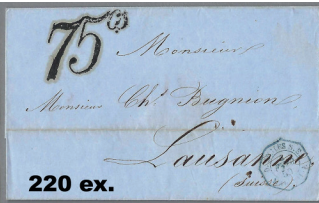 75 cs
Monsieur
Monsieur Chs. Bugnion
Lausanne
(Suisse)
220 ex.